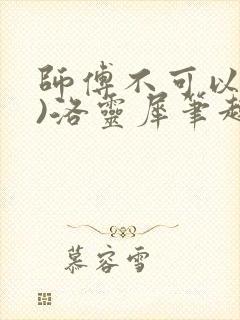 師傅不可以
)洛靈犀筆趣
慕容雪